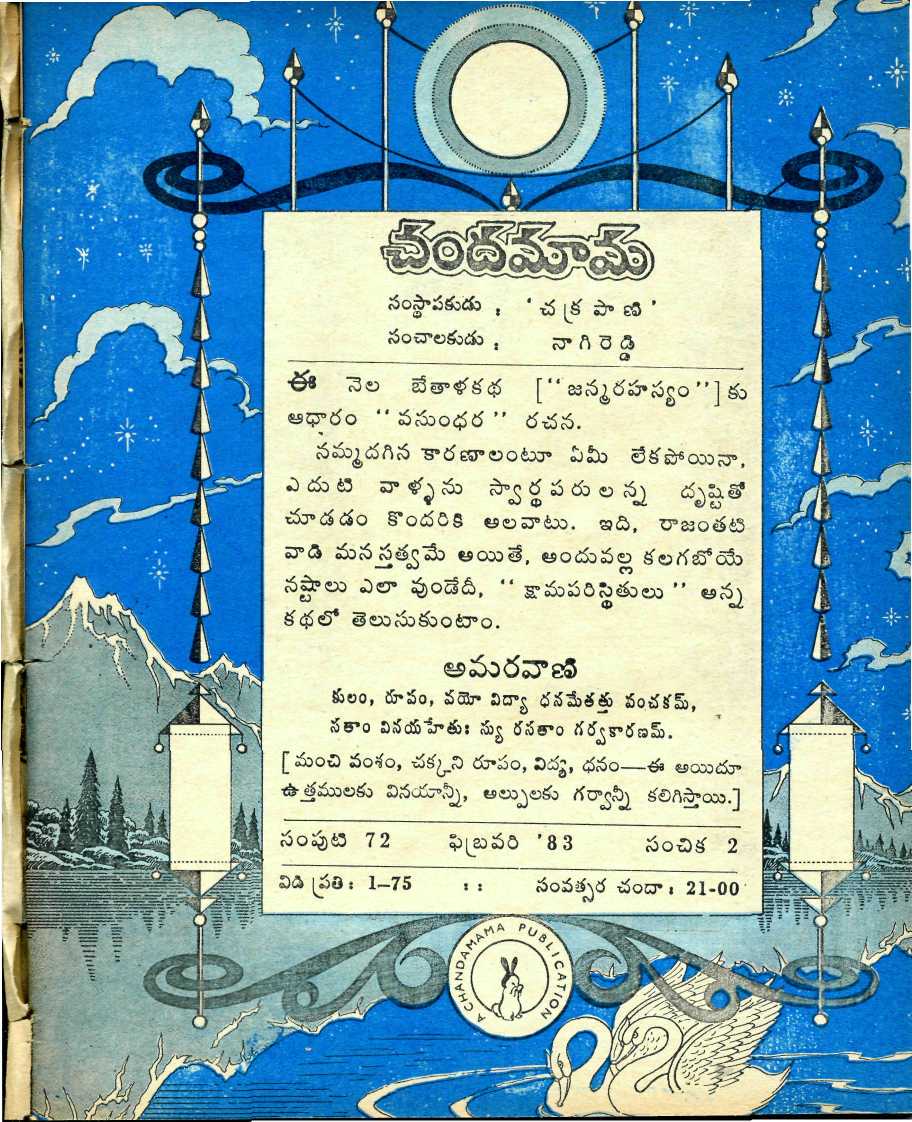 చందమామ
సంస్థాపకుడు : ' చక్రపాణి '
సంచాలకుడు : నాగిరెడ్డి
ఈ నెల బేతాళకథ [‘‘ జన్మరహస్యం ’’] కు
ఆధారం ‘‘ వసుంధర ’’ రచన.
నమ్మదగిన కారణాలంటూ ఏమీ లేకపోయినా,
ఎదుటి వాళ్ళను స్వార్థపరులన్న దృష్టితో
చూడడం కొందరికి అలవాటు. ఇది, రాజంతటి
వాడి మనస్తత్వమే అయితే, అందువల్ల కలగబోయే
నష్టాలు ఎలా వుండేదీ, ‘‘ క్షామపరిస్థితులు ’’ అన్న
కథలో తెలుసుకుంటాం.
అమరవాణి
కులం, రూపం, వయో విద్యా ధనమేతత్తు పంచకమ్,
సతాం వినయహేతుః స్యు రసతాం గర్వకారణమ్.
[ మంచి వంశం, చక్కని రూపం, విద్య, ధనం—ఈ అయిదూ
ఉత్తములకు వినయాన్నీ, అల్పులకు గర్వాన్నీ కలిగిస్తాయి.]
సంపుటి 72 ఫిబ్రవరి '83 సంచిక 2
విడి ప్రతి : 1–75 : : సంవత్సర చందా : 21-00
A CHANDAMAMA PUBLICATION